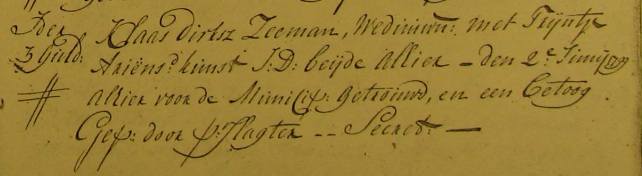 Ider Klaas Dirksz Zeeman, Weduwn: met Trijntje
3 Guld: Ariens d: kunst J:D: beijde Alhier - den 2e Junij
Alhier voor de Municip: getrouwd, en een betoog
Gep: door P: Slagter -- Secret: —